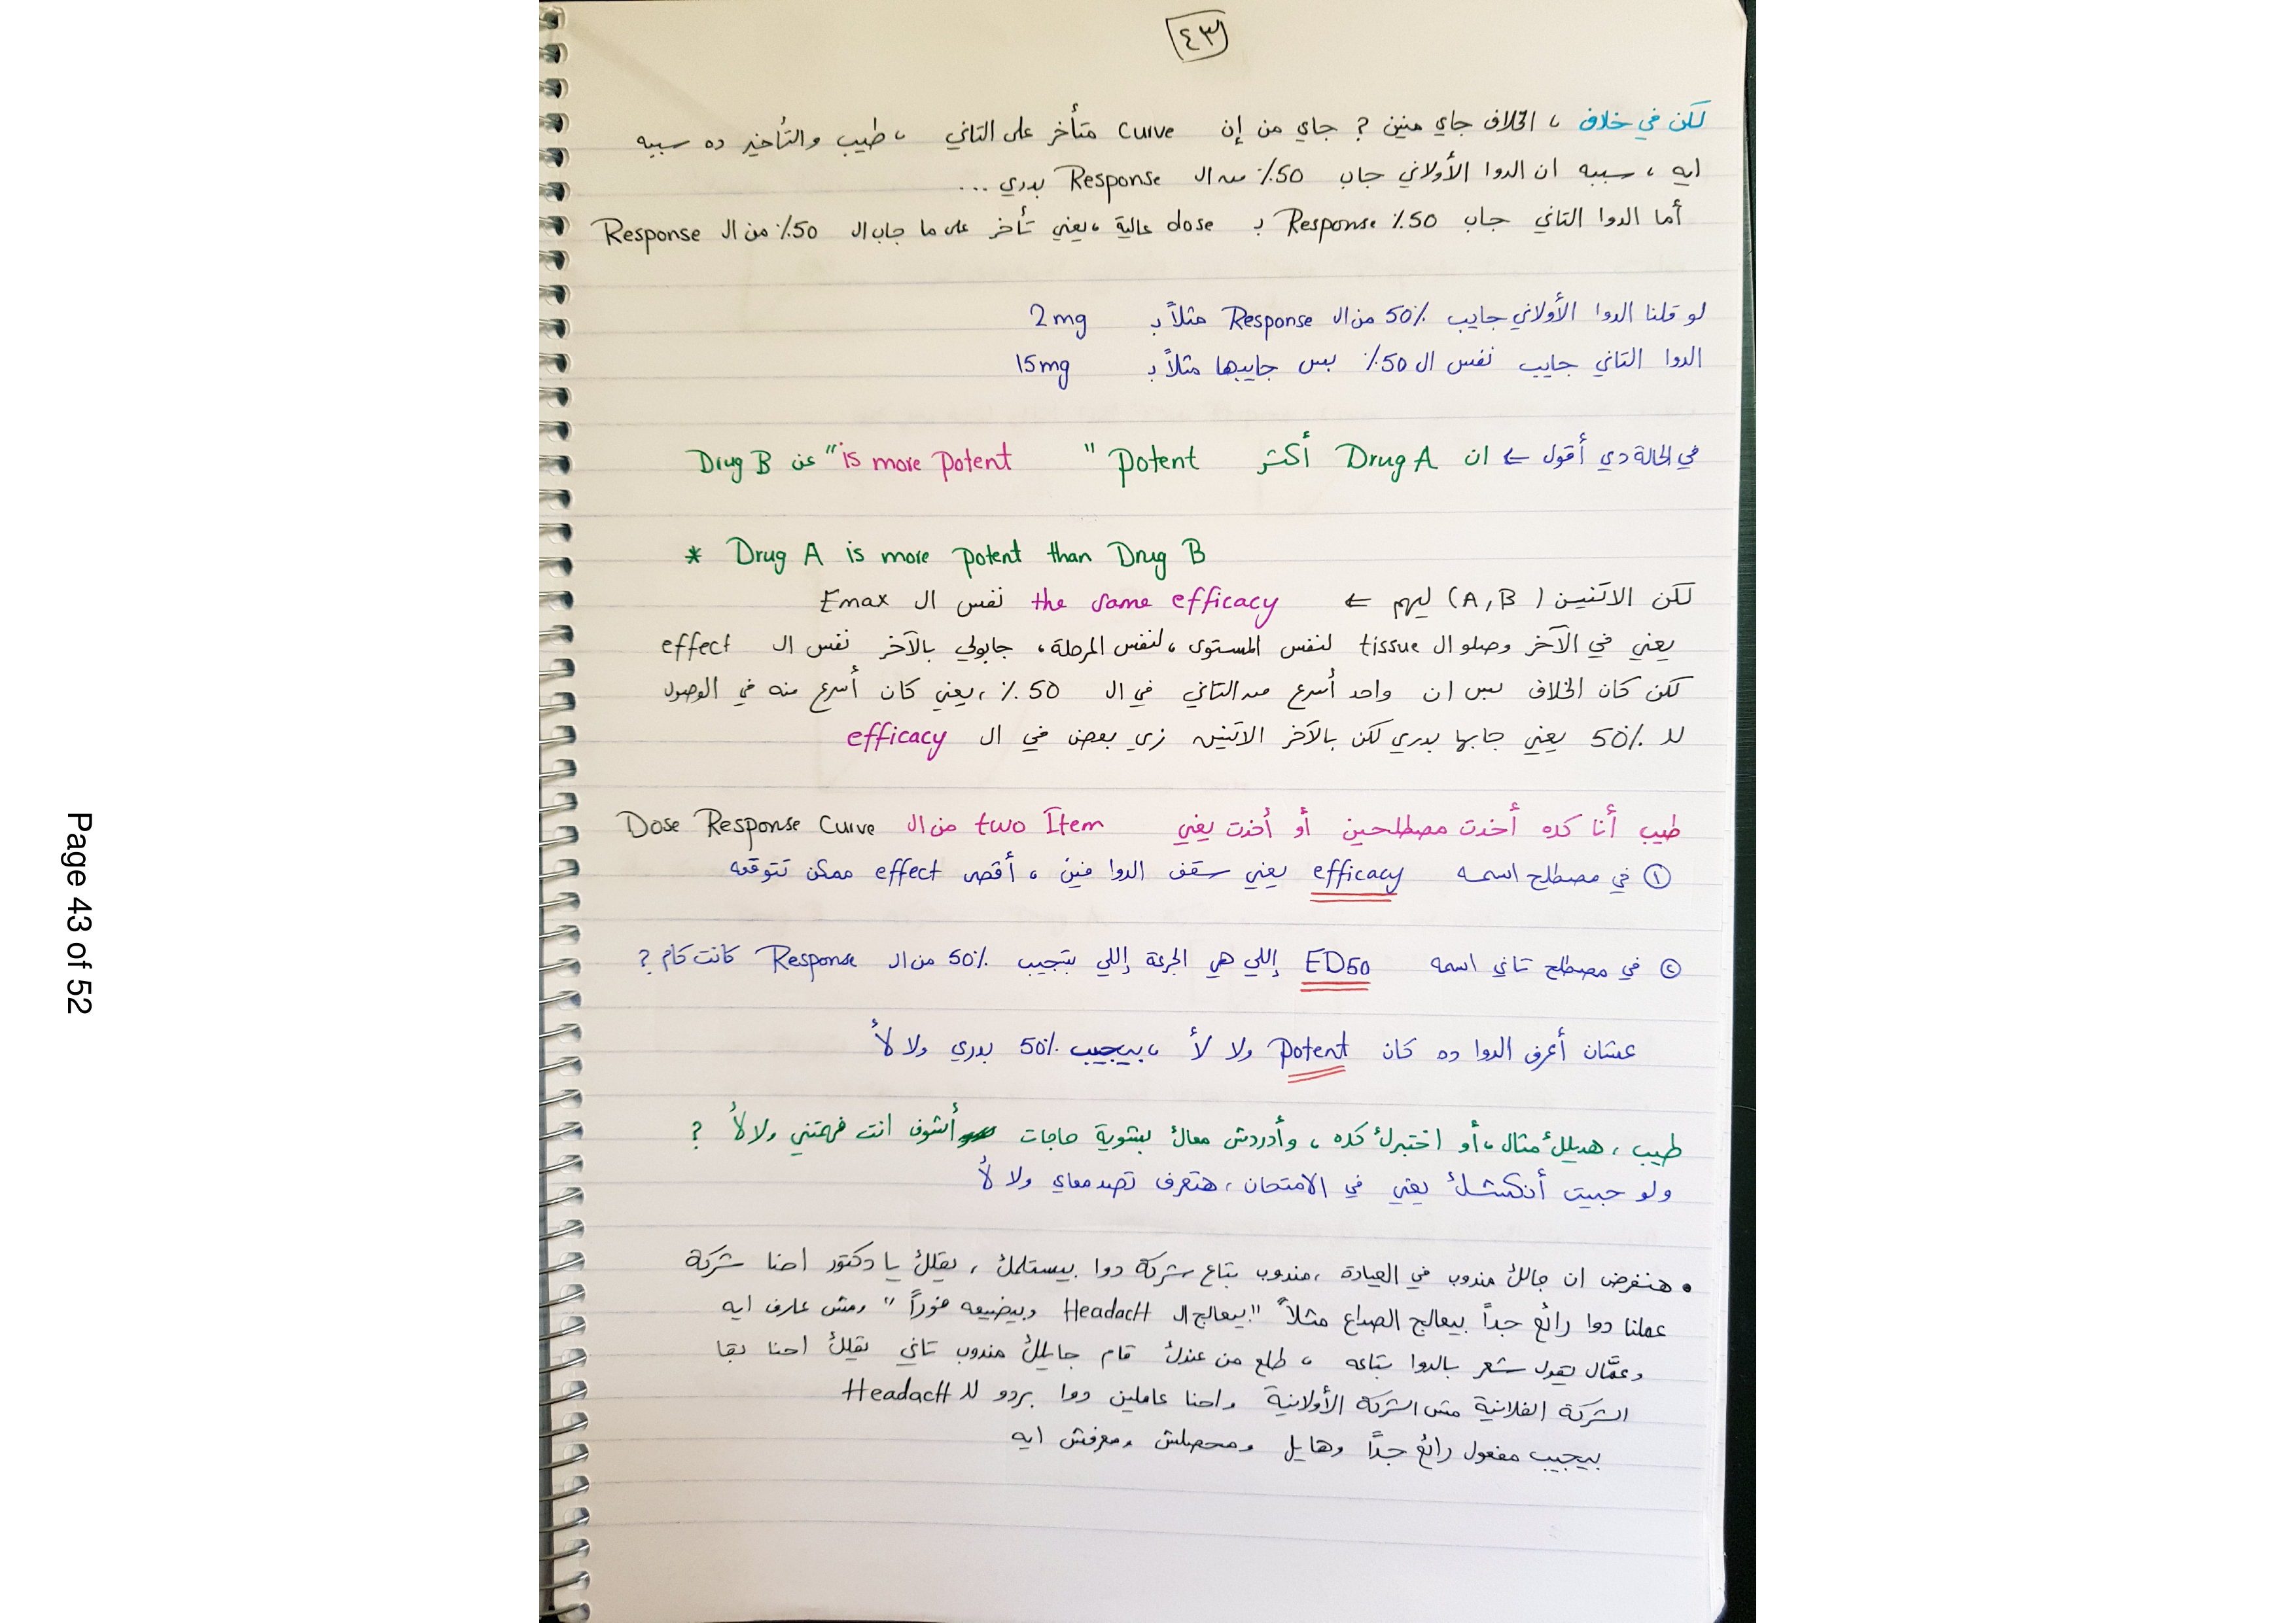 ٤٣
لكن في خلاف ، الخلاف جاي منين ? جاي من إن Curve متأخر على التاني ، طيب والتأخير ده سببه
ايه ، سببه ان الدوا الأولاني جاب 50٪ من ال Response بدري ...
أما الدوا التاني جاب 50٪ Response بـ dose عالية ، يعني تأخر على ما جاب ال 50٪ من ال Response
لو قلنا الدوا الأولاني جايب 50٪ من ال Response مثلاً بـ 2mg
الدوا التاني جايب نفس ال 50٪ بس جايبها مثلاً بـ 15mg
في الحالة دي أقول ← ان Drug A أكتر Potent " is more Potent " عن Drug B
* Drug A is more potent than Drug B
لكن الاتنين (A,B) ليهم ← the same efficacy نفس ال Emax
يعني في الآخر وصلو ال tissue لنفس المستوى ، لنفس المرحلة ، جابولي بالآخر نفس ال effect
لكن كان الخلاف بس ان واحد أسرع من التاني في ال 50٪ ، يعني كان أسرع منه في الوصول
للـ 50٪ يعني جابها بدري لكن بالآخر الاتنين زي بعض في ال efficacy
طيب أنا كده أخدت مصطلحين أو أخدت يعني two Item من ال Dose Response Curve
١ في مصطلح اسمه efficacy يعني سقف الدوا فين ، أقصى effect ممكن تتوقعه
٢ في مصطلح تاني اسمه ED50 إللي هي الجرعة إللي بتجيب 50٪ من ال Response كانت كام ?
عشان أعرف الدوا ده كان Potent ولا لأ ، بيجيب 50٪ بدري ولا لأ
طيب ، هديلك مثال ، أو اختبرك كده ، وأدردش معاك بشوية حاجات أشوف انت فهمتني ولا لأ ?
ولو جبيت أنكشلك يعني في الامتحان ، هتعرف تصد معاي ولا لأ
• هنفرض ان جالك مندوب في العيادة ، مندوب بتاع شركة دوا بيستلمك ، يقلك يا دكتور احنا شركة
عملنا دوا رائع جداً بيعالج الصداع مثلاً " بيعالج ال HeadacH وبيضيعه فوراً " ومش عارف ايه
وعمّال يقول شعر بالدوا بتاعه ، طلع من عندك قام جايلك مندوب تاني يقلك احنا بقا
الشركة الفلانية مش الشركة الأولانية واحنا عاملين دوا بردو للـ HeadacH
بيجيب مفعول رائع جداً وهايل ومحصلش ومعرفش ايه
Page 43 of 52